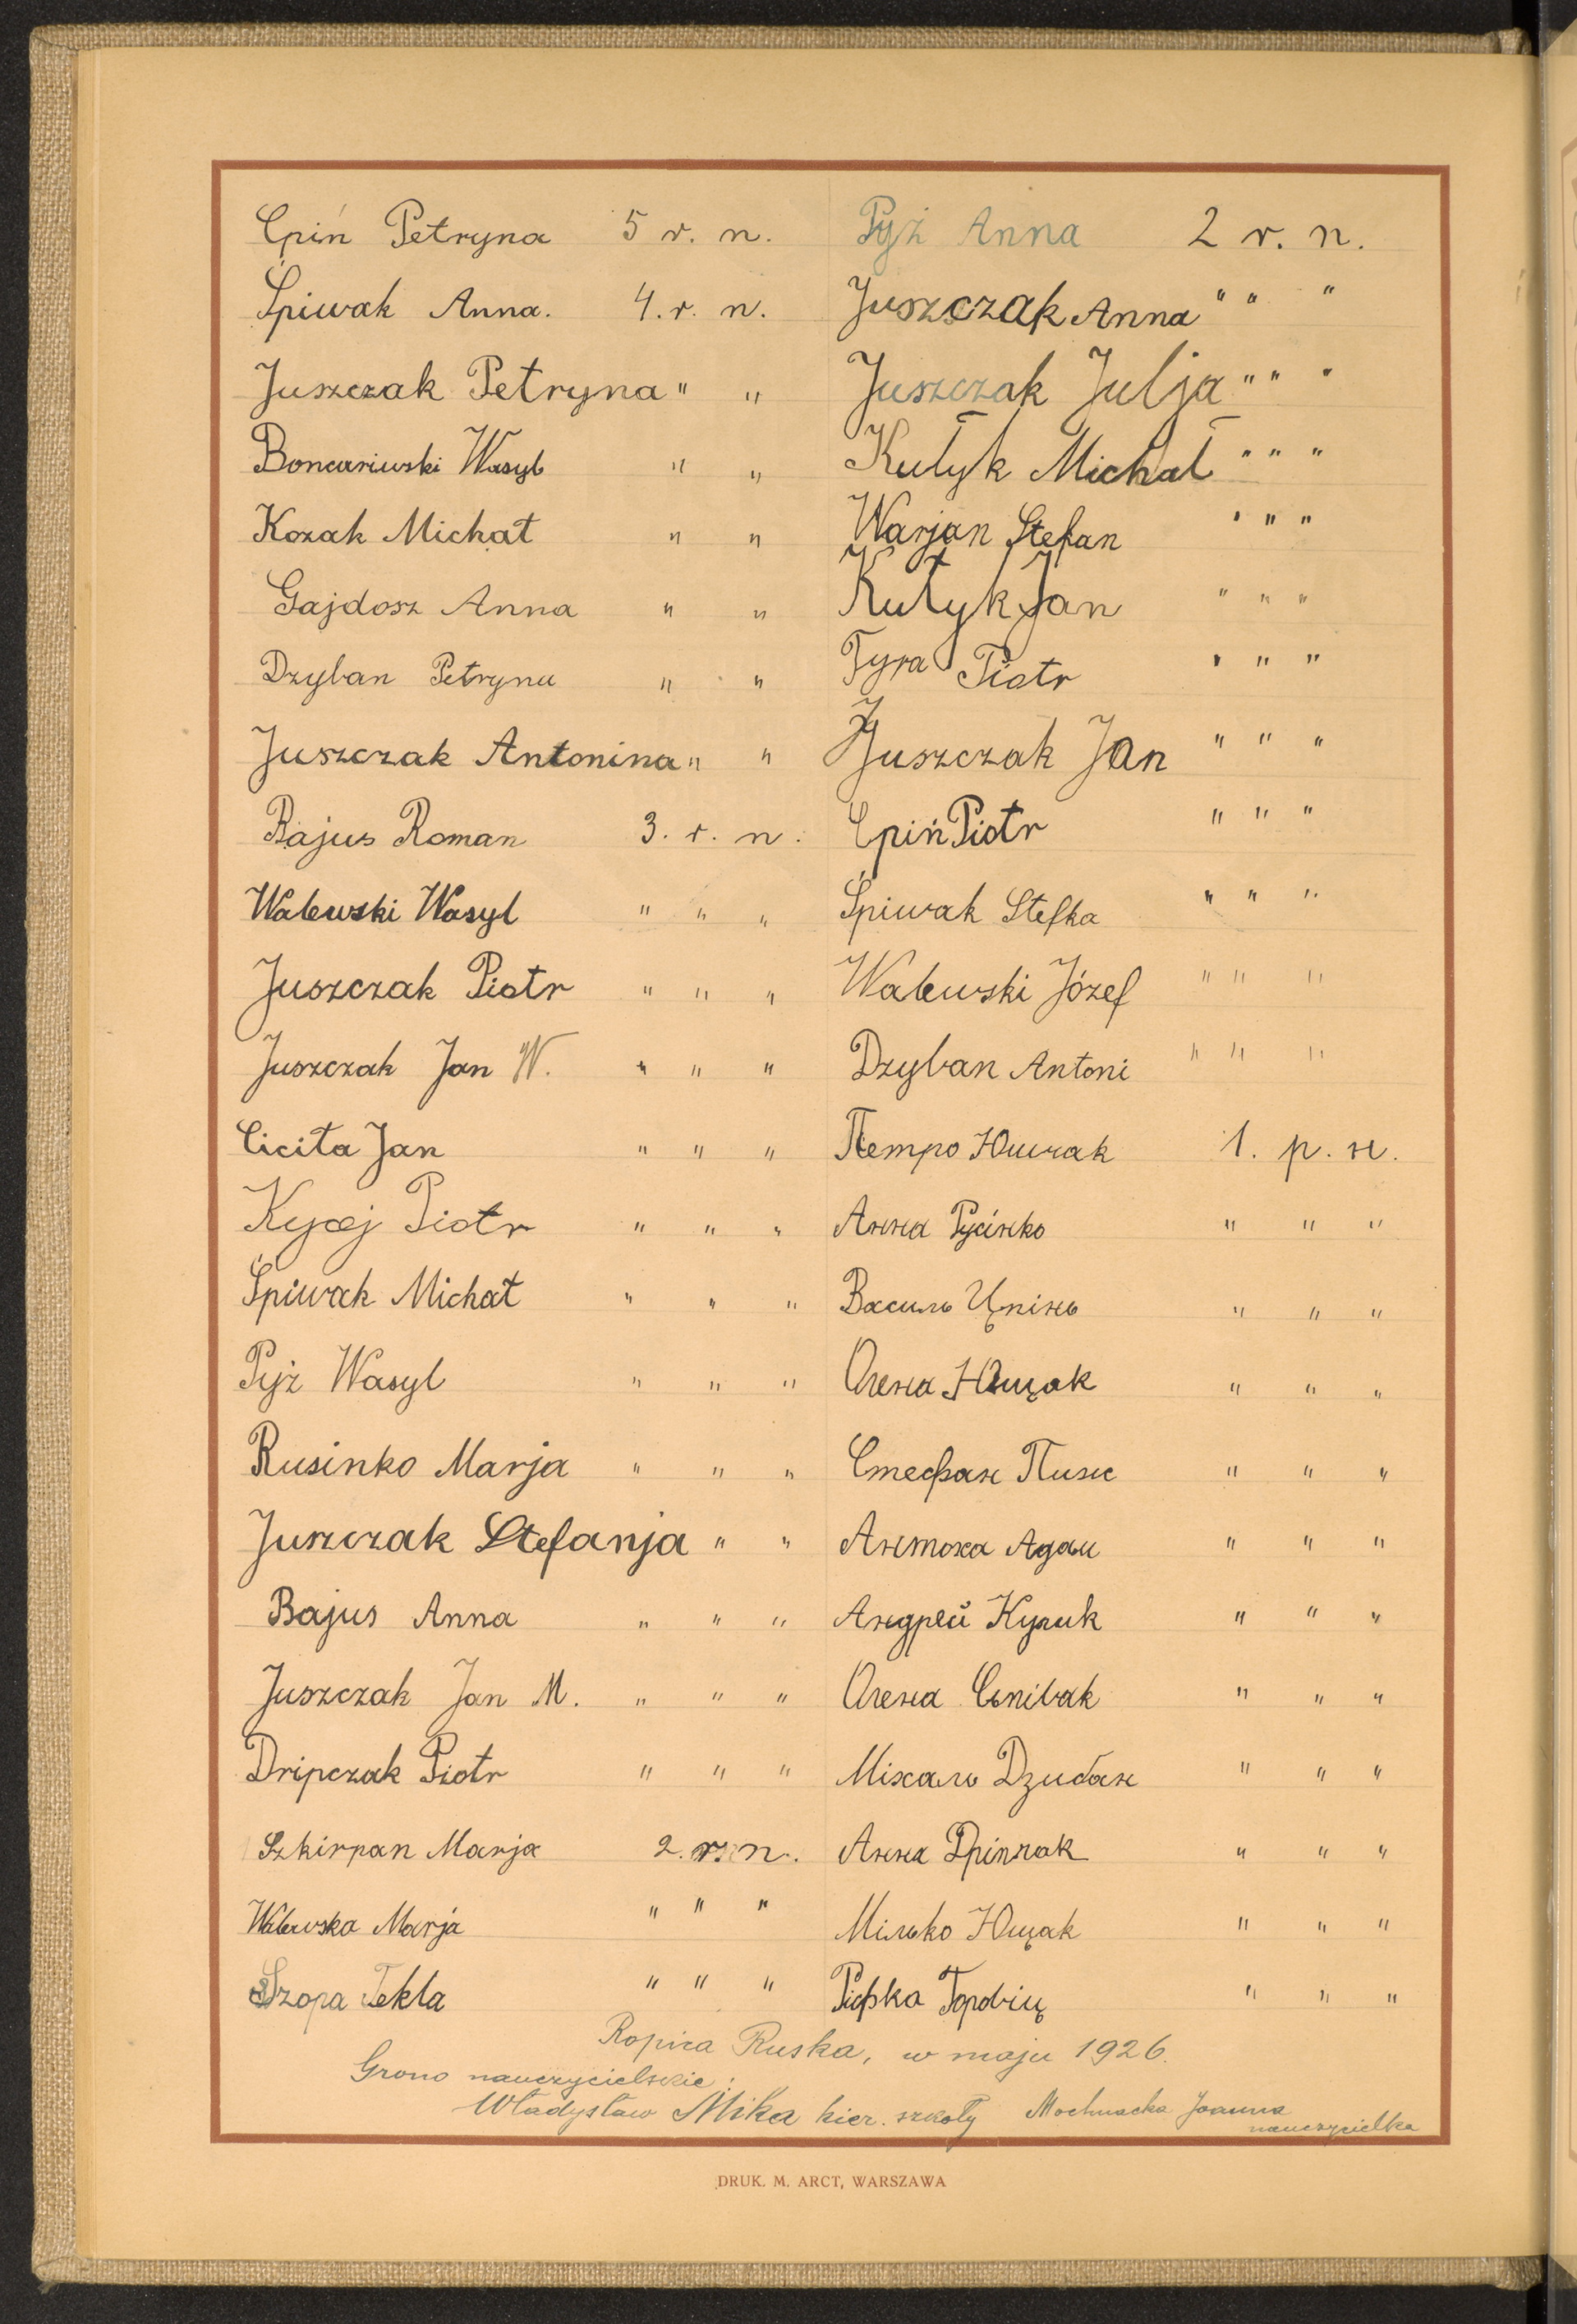 Cpiń Petryna 5 r. n.
Śpiwak Anna. 4. r. n.
Juszczak Petryna " "
Boncariwski Wasyl " "
Kozak Michał " "
Gajdosz Anna " "
Dzyban Petryna " "
Juszczak Antonina " "
Bajus Roman 3. r. n.
Walewski Wasyl " " "
Juszczak Piotr " " "
Juszczak Jan W. " " "
Cicita Jan " " "
Piotr " " "
Śpiwak Michał " " "
Pyż Wasyl " " "
Rusinko Marja " " "
Juszczak Stefanja " "
Bajus Anna " " "
Juszczak Jan M. " " "
Dripczak Piotr " " "
Szkirpan Marja 2. r. n.
Walewska Marja " " "
Szopa Tekla " " "
Pyż Anna 2 r. n.
Juszczak Anna " " "
Juszczak Julja " " "
Kułyk Michał " " "
Warjan Stefan " " "
Kułyk Jan " " "
Tyra Piotr " " "
Juszczak Jan " " "
Cpiń Piotr " " "
Śpiwak Stefka " " "
Walewski Józef " " "
Dzyban Antoni " " "
Петро Юшчак 1. р. н.
Анна Русінко " " "
Василь Цпінь " " "
Олена Ющак " " "
Стефан Пиж " " "
Антоха Адам " " "
Андрей Кулик " " "
Олена Сьпівак " " "
Міхаль Дзибан " " "
Анна Дріпчак " " "
Мілько Ющак " " "
" " "
Ropica Ruska, w maju 1926.
Grono nauczycielskie:
Władysław Mika kier. szkoły Mochnacka Joanna
nauczycielka
DRUK. M. ARCT, WARSZAWA